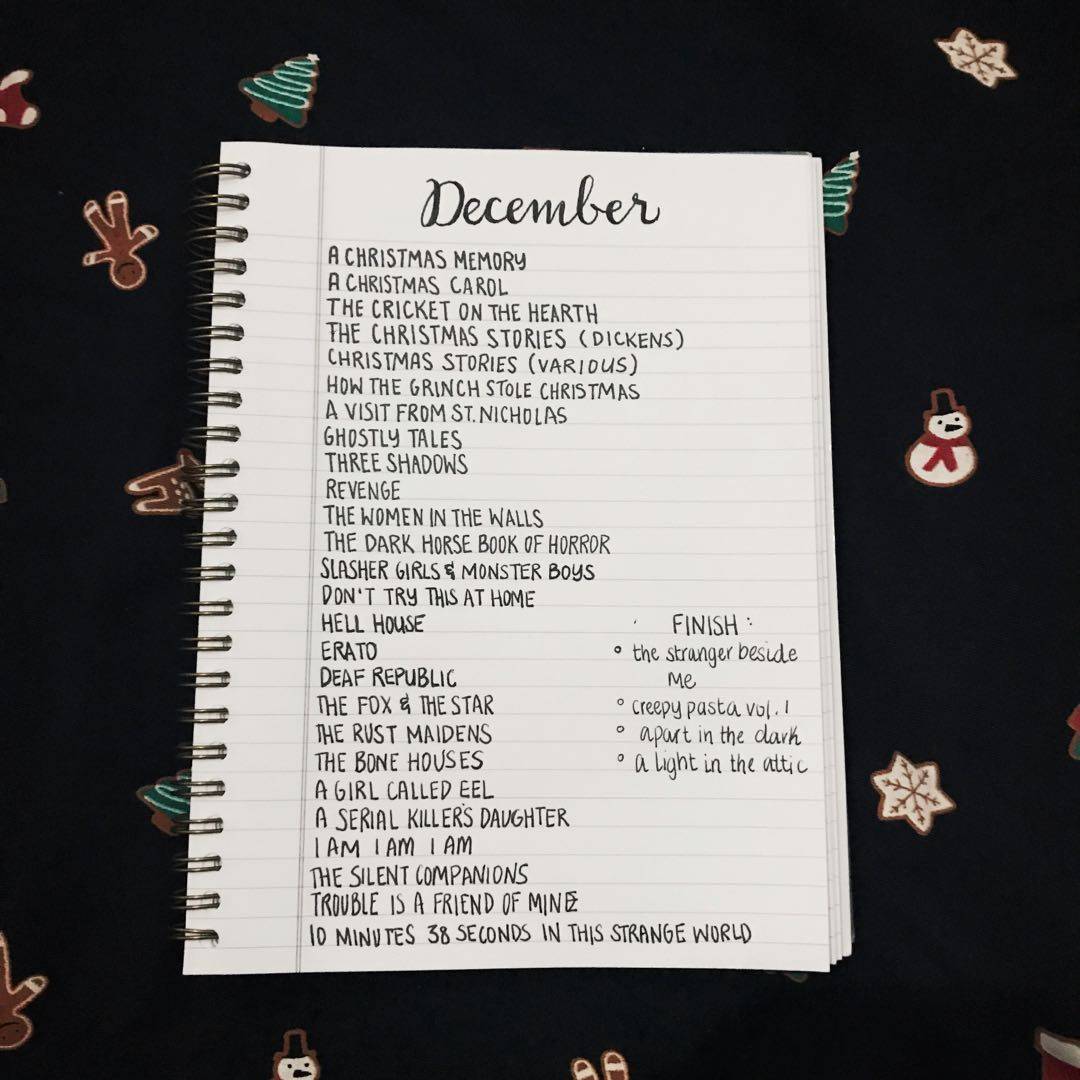 December
A CHRISTMAS MEMORY
A CHRISTMAS CAROL
THE CRICKET ON THE HEARTH
THE CHRISTMAS STORIES (DICKENS)
CHRISTMAS STORIES (VARIOUS)
HOW THE GRINCH STOLE CHRISTMAS
A VISIT FROM ST. NICHOLAS
GHOSTLY TALES
THREE SHADOWS
REVENGE
THE WOMEN IN THE WALLS
THE DARK HORSE BOOK OF HORROR
SLASHER GIRLS & MONSTER BOYS
DON'T TRY THIS AT HOME
HELL HOUSE
ERATO
DEAF REPUBLIC
THE FOX & THE STAR
THE RUST MAIDENS
THE BONE HOUSES
A GIRL CALLED EEL
A SERIAL KILLER'S DAUGHTER
I AM I AM I AM
THE SILENT COMPANIONS
TROUBLE IS A FRIEND OF MINE
10 MINUTES 38 SECONDS IN THIS STRANGE WORLD
FINISH:
° the stranger beside
me
° creepy pasta vol. 1
° apart in the dark
° a light in the attic